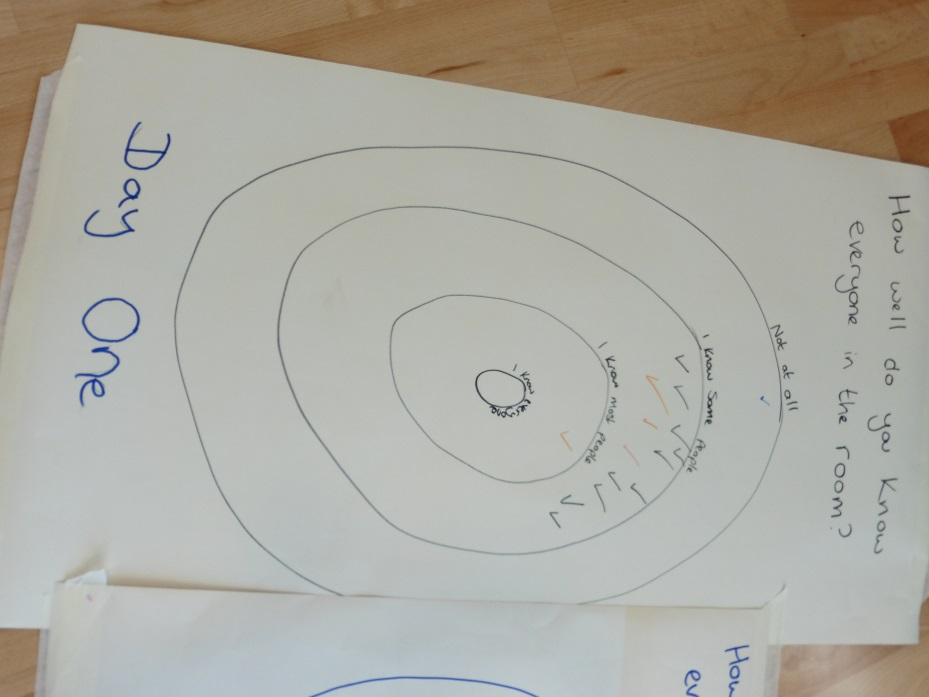 How well do you know
everyone in the room?
Not at all
I know some people
I know most people
I know everyone
Day One
How
ev